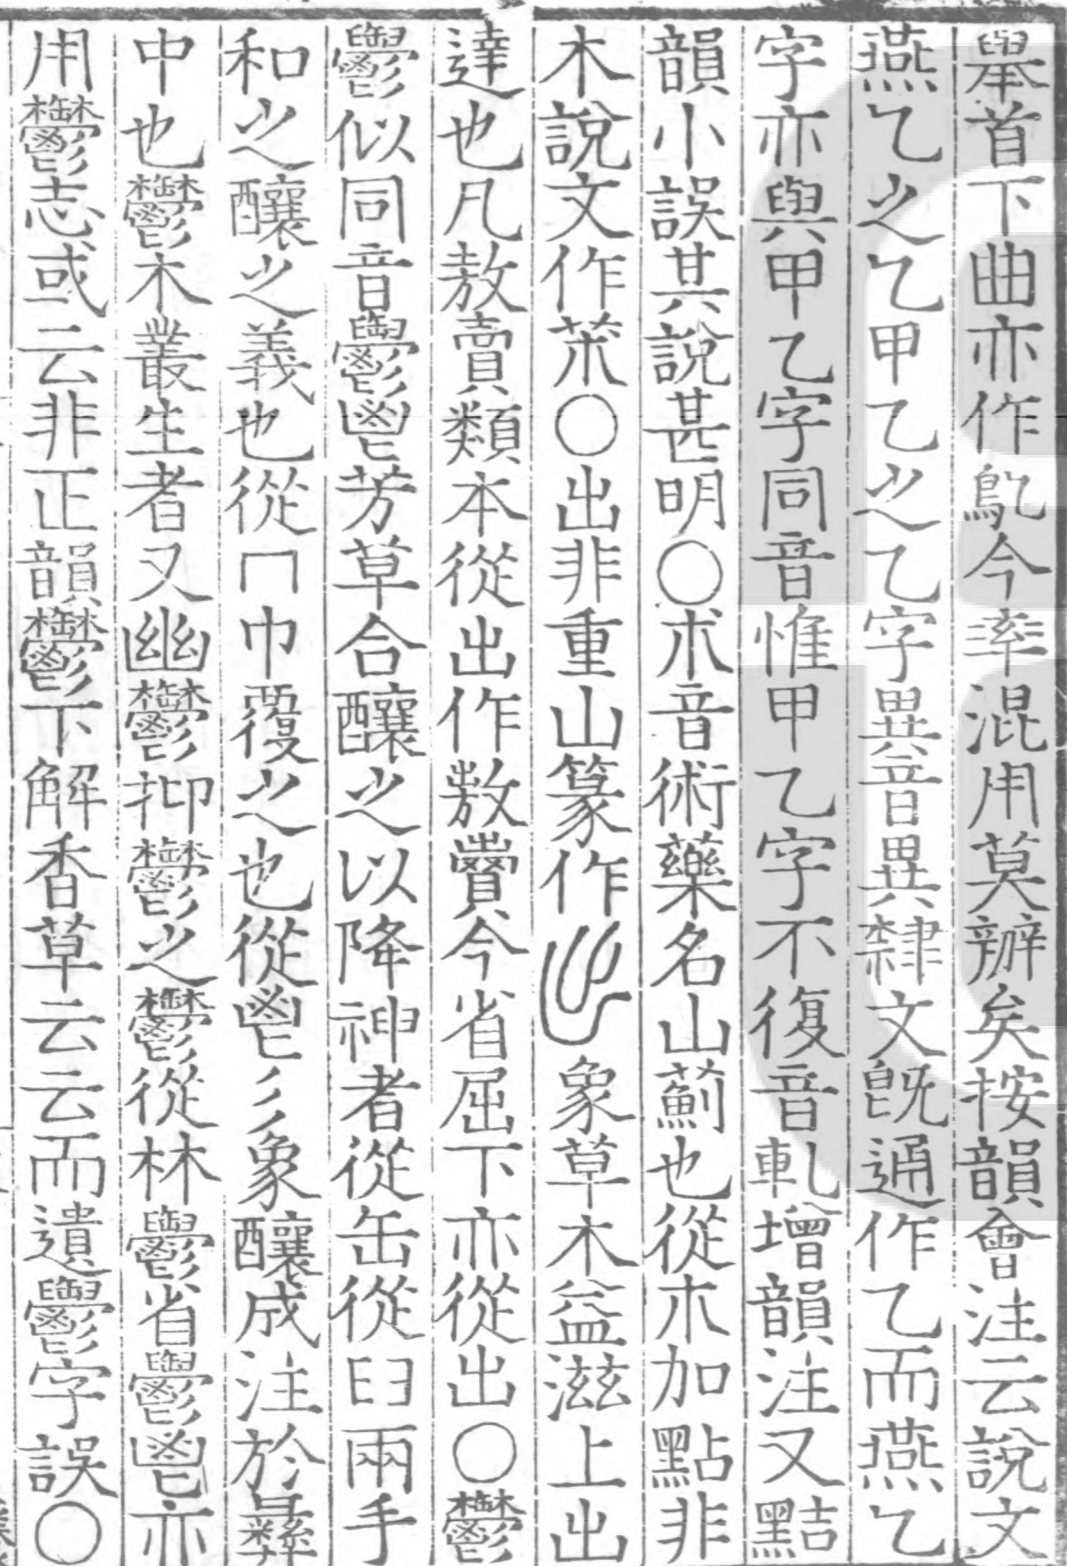 舉首下曲亦作鳦今率混用莫辦矣按韻會注云說文
燕乚之乚甲乙之乙字異音異隸文旣通作乙而燕乚
字亦與甲乙字同音惟甲乙字不復音軋增韻注又黠
韻小誤其說甚明○朮音術藥名山薊也從朮加點非
木說文作𣎵○出非重山篆作象草木益滋上出
達也凡敖賣類本從出作敖𧷗今省屈下亦從出○鬱
鬱似同音鬱鬯芳草合釀之以降神者從缶從𦥑兩手
和之釀之義也從冂巾覆之也從鬯彡象釀成注於彝
中也鬱木叢生者又幽鬱抑鬱之鬱從林鬱省鬱鬯亦
用鬱志或云非正韻鬱下解香草云云而遺鬱字誤○